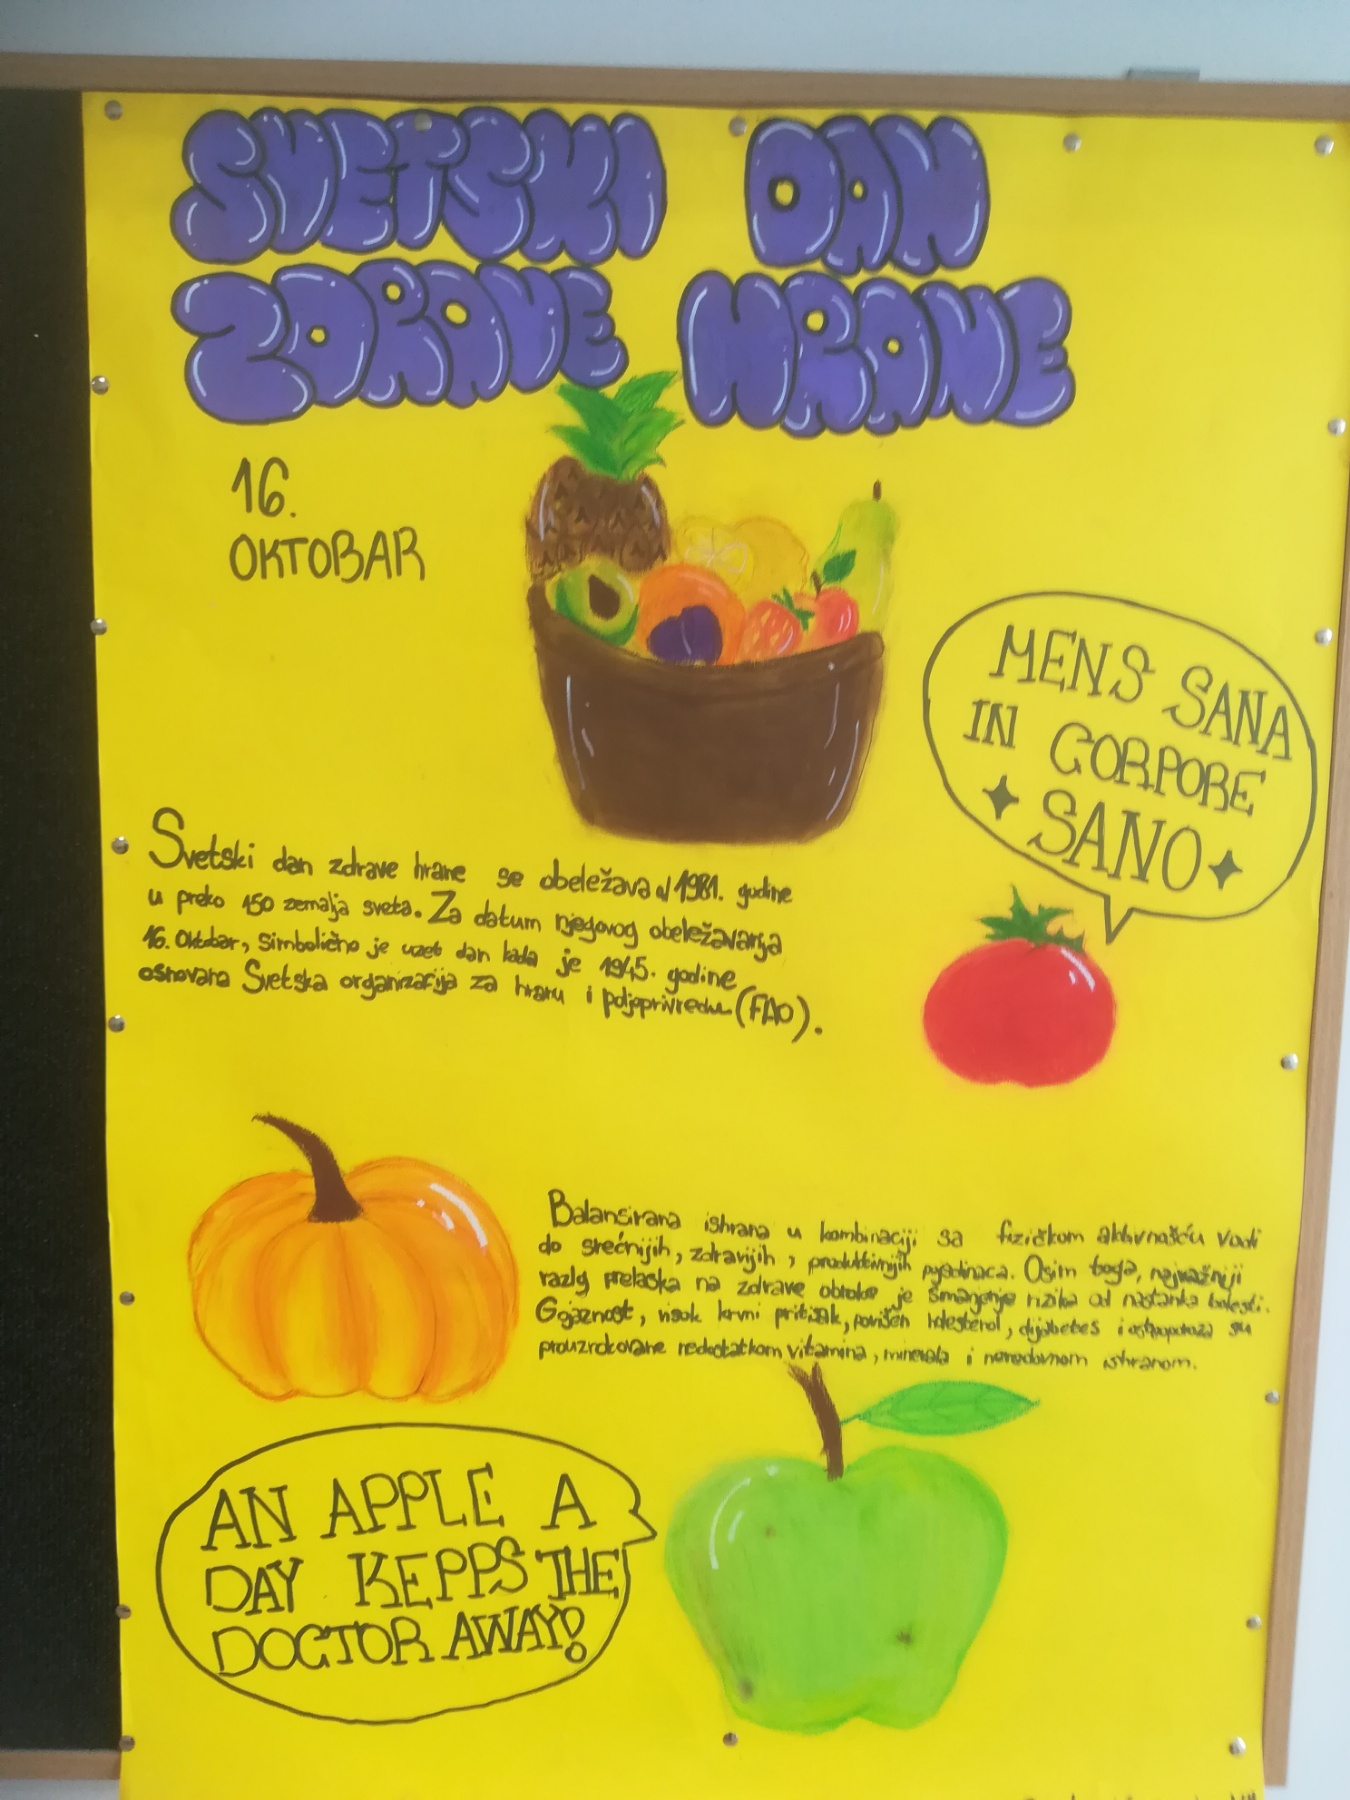 SVETSKI DAN
ZDRAVE HRANE
16.
OKTOBAR
MENS SANA
IN CORPORE
SANO
Svetski dan zdrave hrane se obeležava od 1981. godine
u preko 150 zemalja sveta. Za datum njegovog obeležavanja
16. Oktobar, simbolično je uzet dan kada je 1945. godine
osnovana Svetska organizacija za hranu i poljoprivredu (FAO).
Balansirana ishrana u kombinaciji sa fizičkom aktivnošću vodi
do srećnijih, zdravijih, produktivnijih pojedinaca. Osim toga, najvažniji
razlog prelaska na zdrave obroke je smanjenje rizika od nastanka bolesti.
Gojaznost, visok krvni pritisak, povišen holesterol, dijabetes i osteoporoza su
prouzrokovane nedostatkom vitamina, minerala i neredovnom ishranom.
AN APPLE A
DAY KEPPS THE
DOCTOR AWAY!